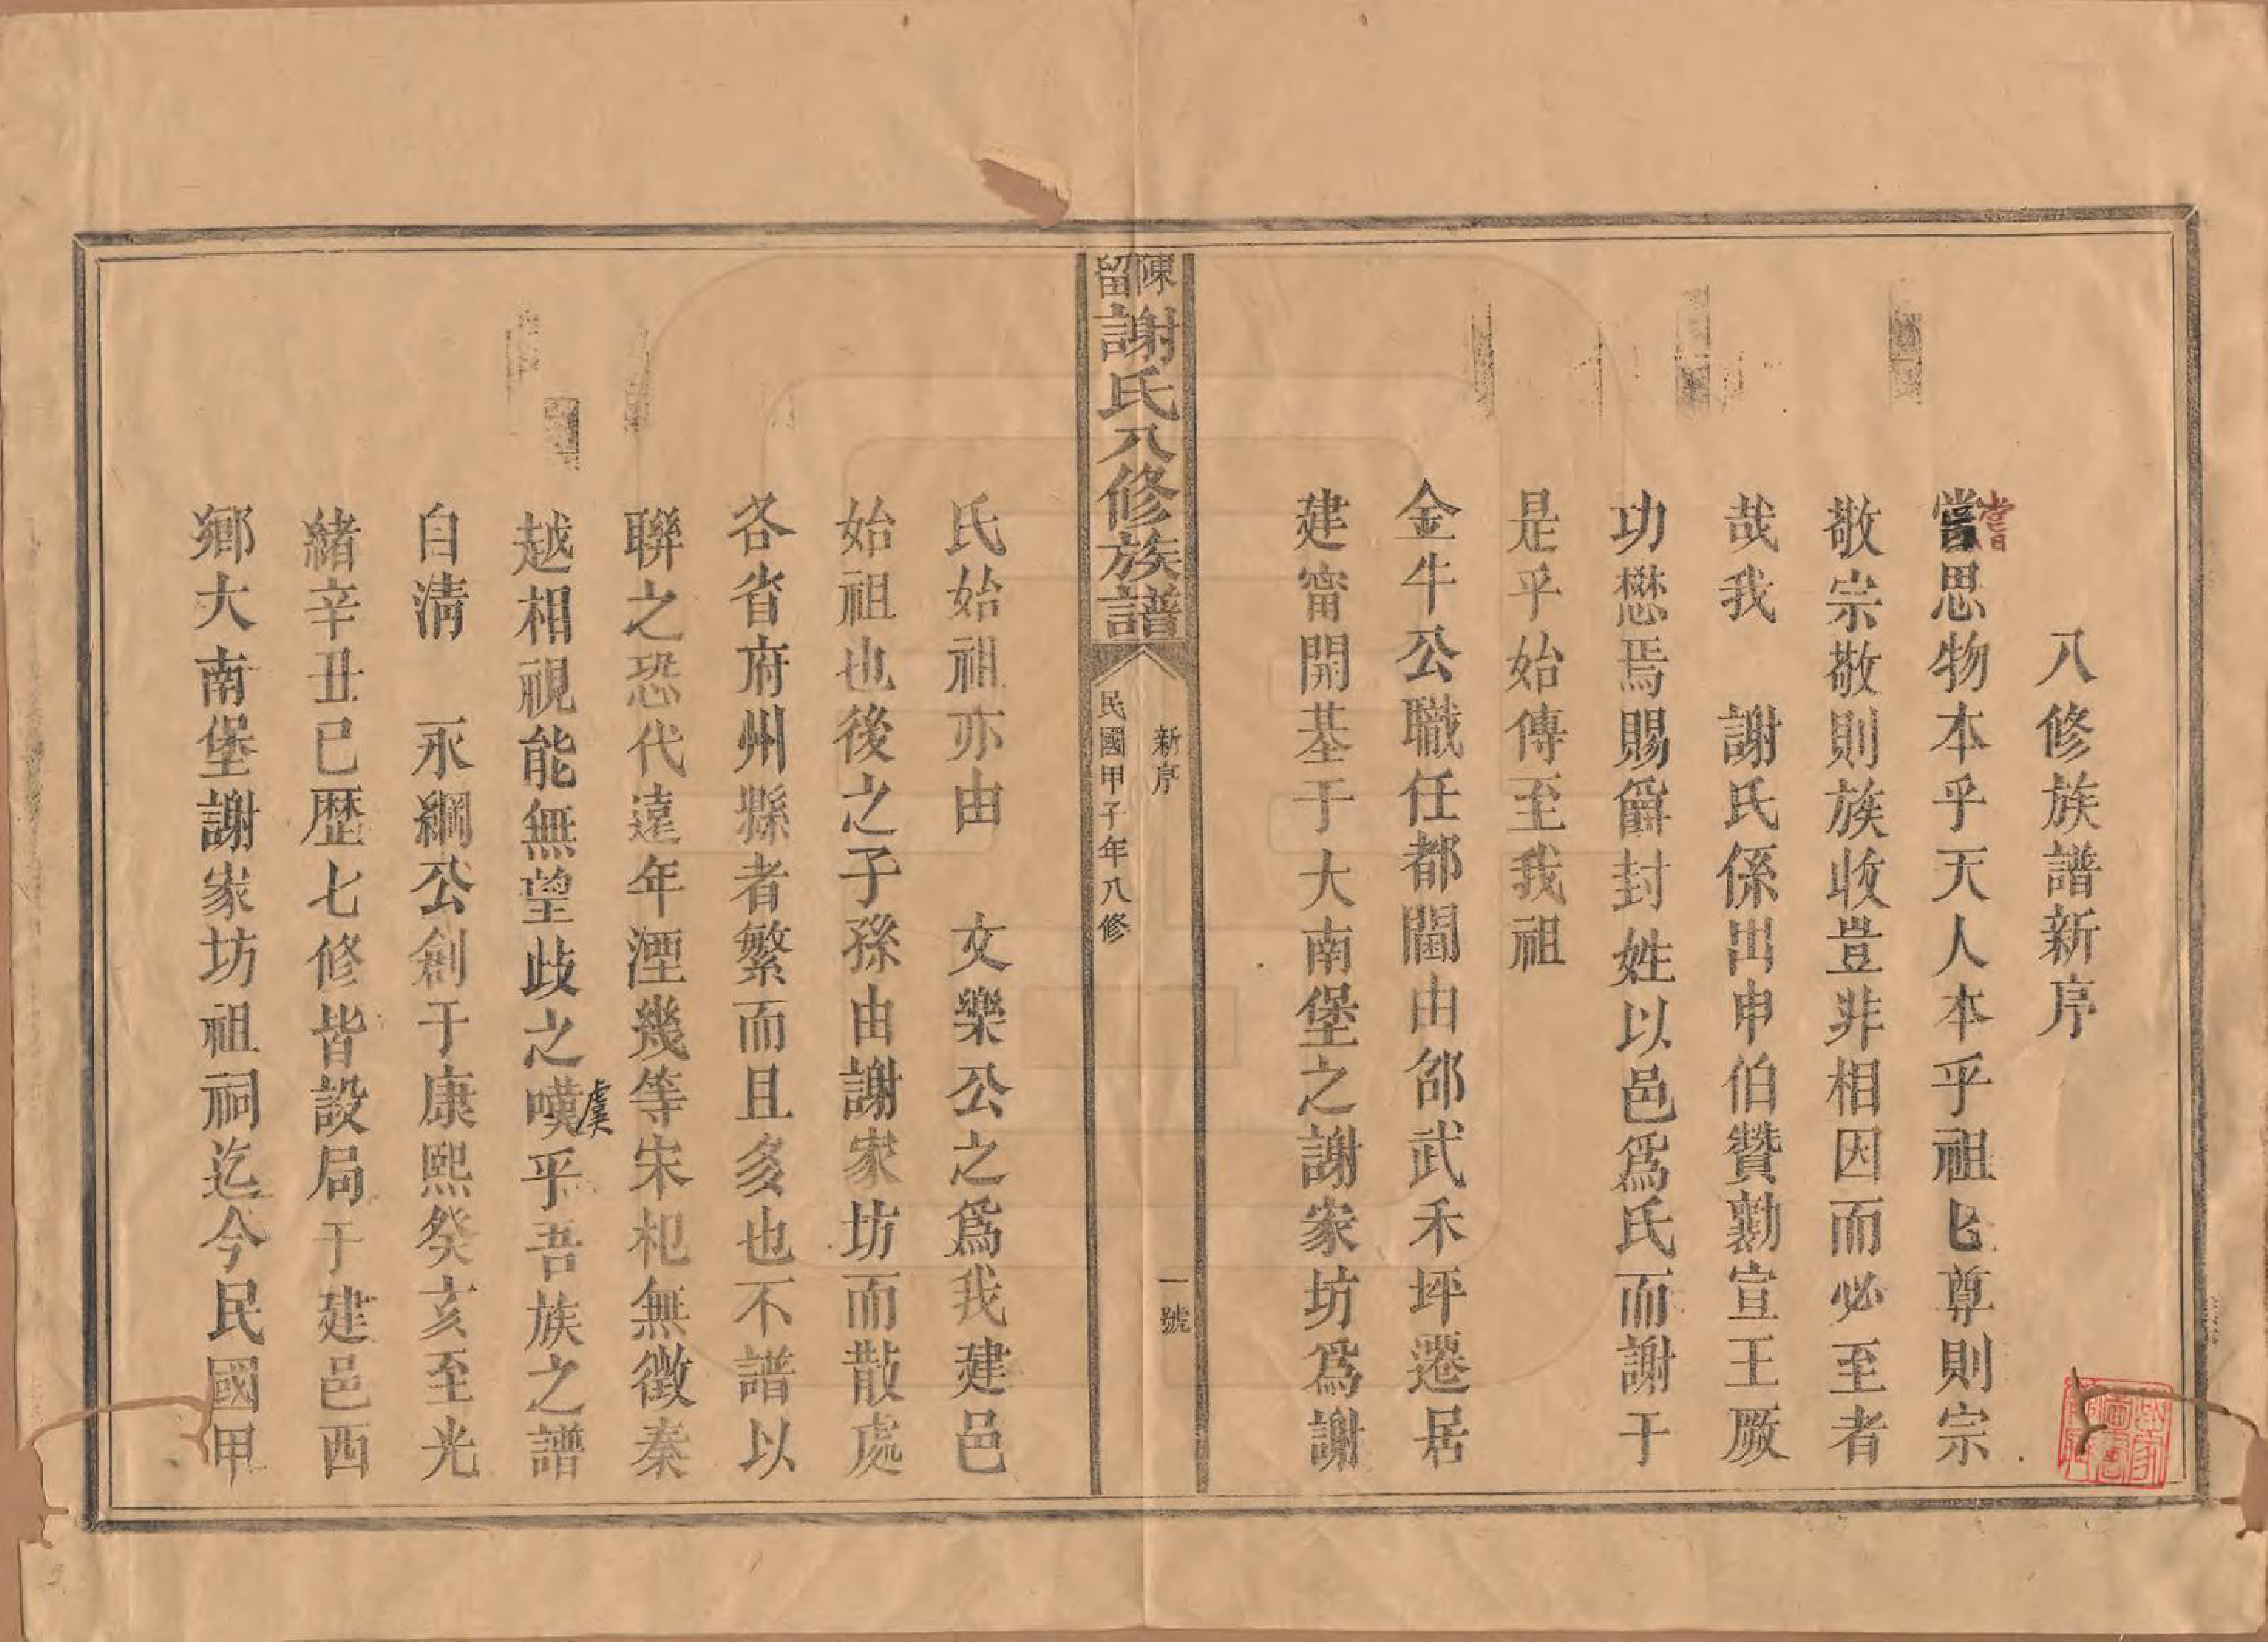 八修族譜新序
嘗思物本乎天人本乎祖匕尊則宗
嘗
敬宗敬則族族收豈非相因而必至者
哉我　謝氏係出申伯贊勷宣王厥
功懋焉賜爵封姓以邑爲氏而謝于
是乎始傳至我祖
金牛公職任都閫由邵武禾坪遷居
建甯開基于大南堡之謝家坊爲謝
陳留謝氏八修族譜
新序
一號
民國甲子年八修
氏始祖亦由　文樂公之爲我建邑
始祖也後之子孫由謝家坊而散處
各省府州縣者繁而且多也不譜以
聯之恐代遠年湮幾等宋杞無徵秦
越相視能無望歧之嘆乎吾族之譜
虞
自清　永綱公創于康熙癸亥至光
緒辛丑已歷七修皆設局于建邑西
鄉大南堡謝家坊祖祠迄今民國甲